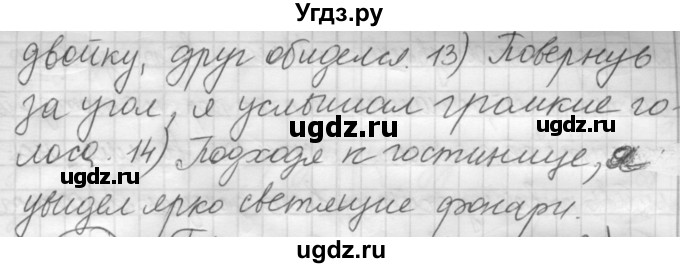 Угдз.ру
двойку, друг обиделся. 13) Повернув
за угол, я услышал громкие го-
ugdz.ru ugdz.ru
лоса. 14) Подходя к гостинице, я
ugdz.ru ugdz.ru
увидел ярко светящие фонари.
ugdz.ru